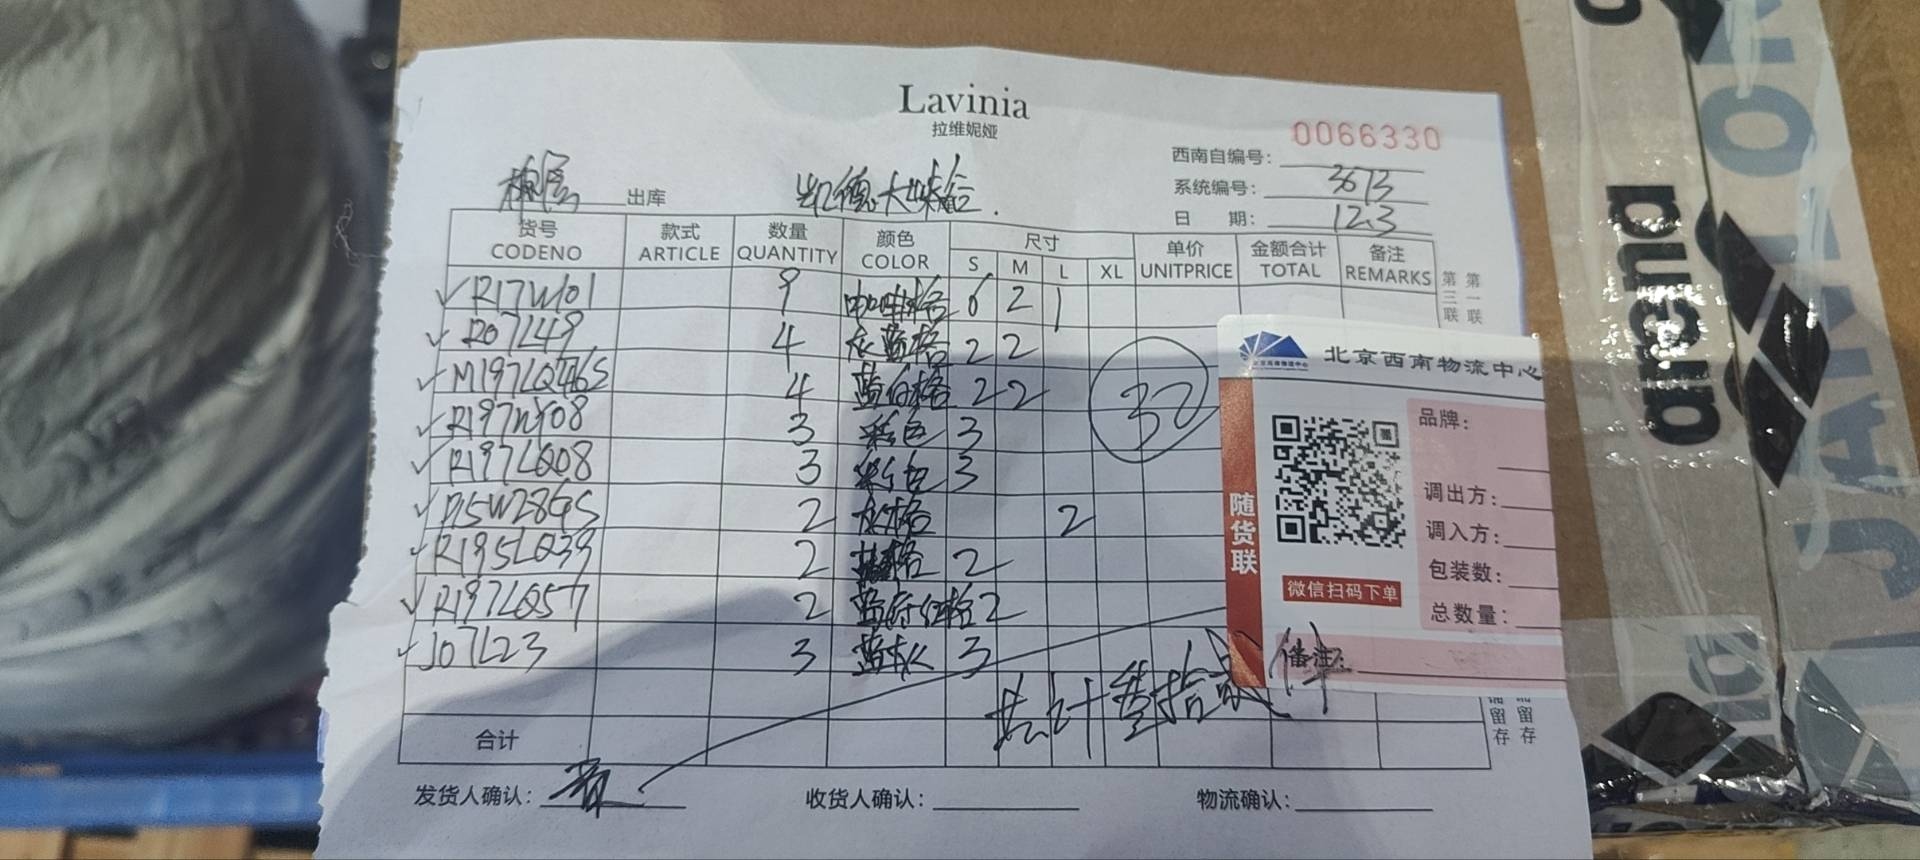 Lavinia
拉维妮娅
0066330
西南自编号:
出库 凯德大峡谷. 系统编号: 3613
日 期: 12.3
货号 款式 数量 颜色 尺寸 单价 金额合计 备注
CODENO ARTICLE QUANTITY COLOR S M L XL UNITPRICE TOTAL REMARKS
第三联 第一联
R17W101 9 咖啡格 6 2 1
R07L49 4 灰蓝格 2 2
4 蓝白格 2 2
R197W108 3 彩色 3
R197LQ08 3 彩色 3
R15W28GS 2 灰格 2
R195LQ39 2 格 2
R197LQ57 2 2
J07L23 3 3
32
共计叁拾贰件
合计
留存 留存
发货人确认: 收货人确认: 物流确认:
北京西南物流中心
随货联
品牌:
调出方:
调入方:
包装数:
微信扫码下单
总数量:
备注:
arena